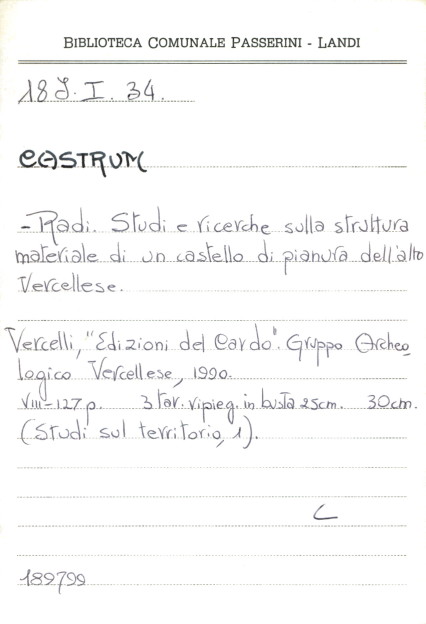 BIBLIOTECA COMUNALE PASSERINI - LANDI
18 J. I. 34.
CASTRUM
- Radi. Studi e ricerche sulla struttura
materiale di un castello di pianura dell'alto
Vercellese.
Vercelli, "Edizioni del Cardo". Gruppo Archeo
logico Vercellese, 1990.
VIII-127 p. 3 tav. ripieg. in busta 25cm. 30cm.
(Studi sul territorio, 1).
C
189799